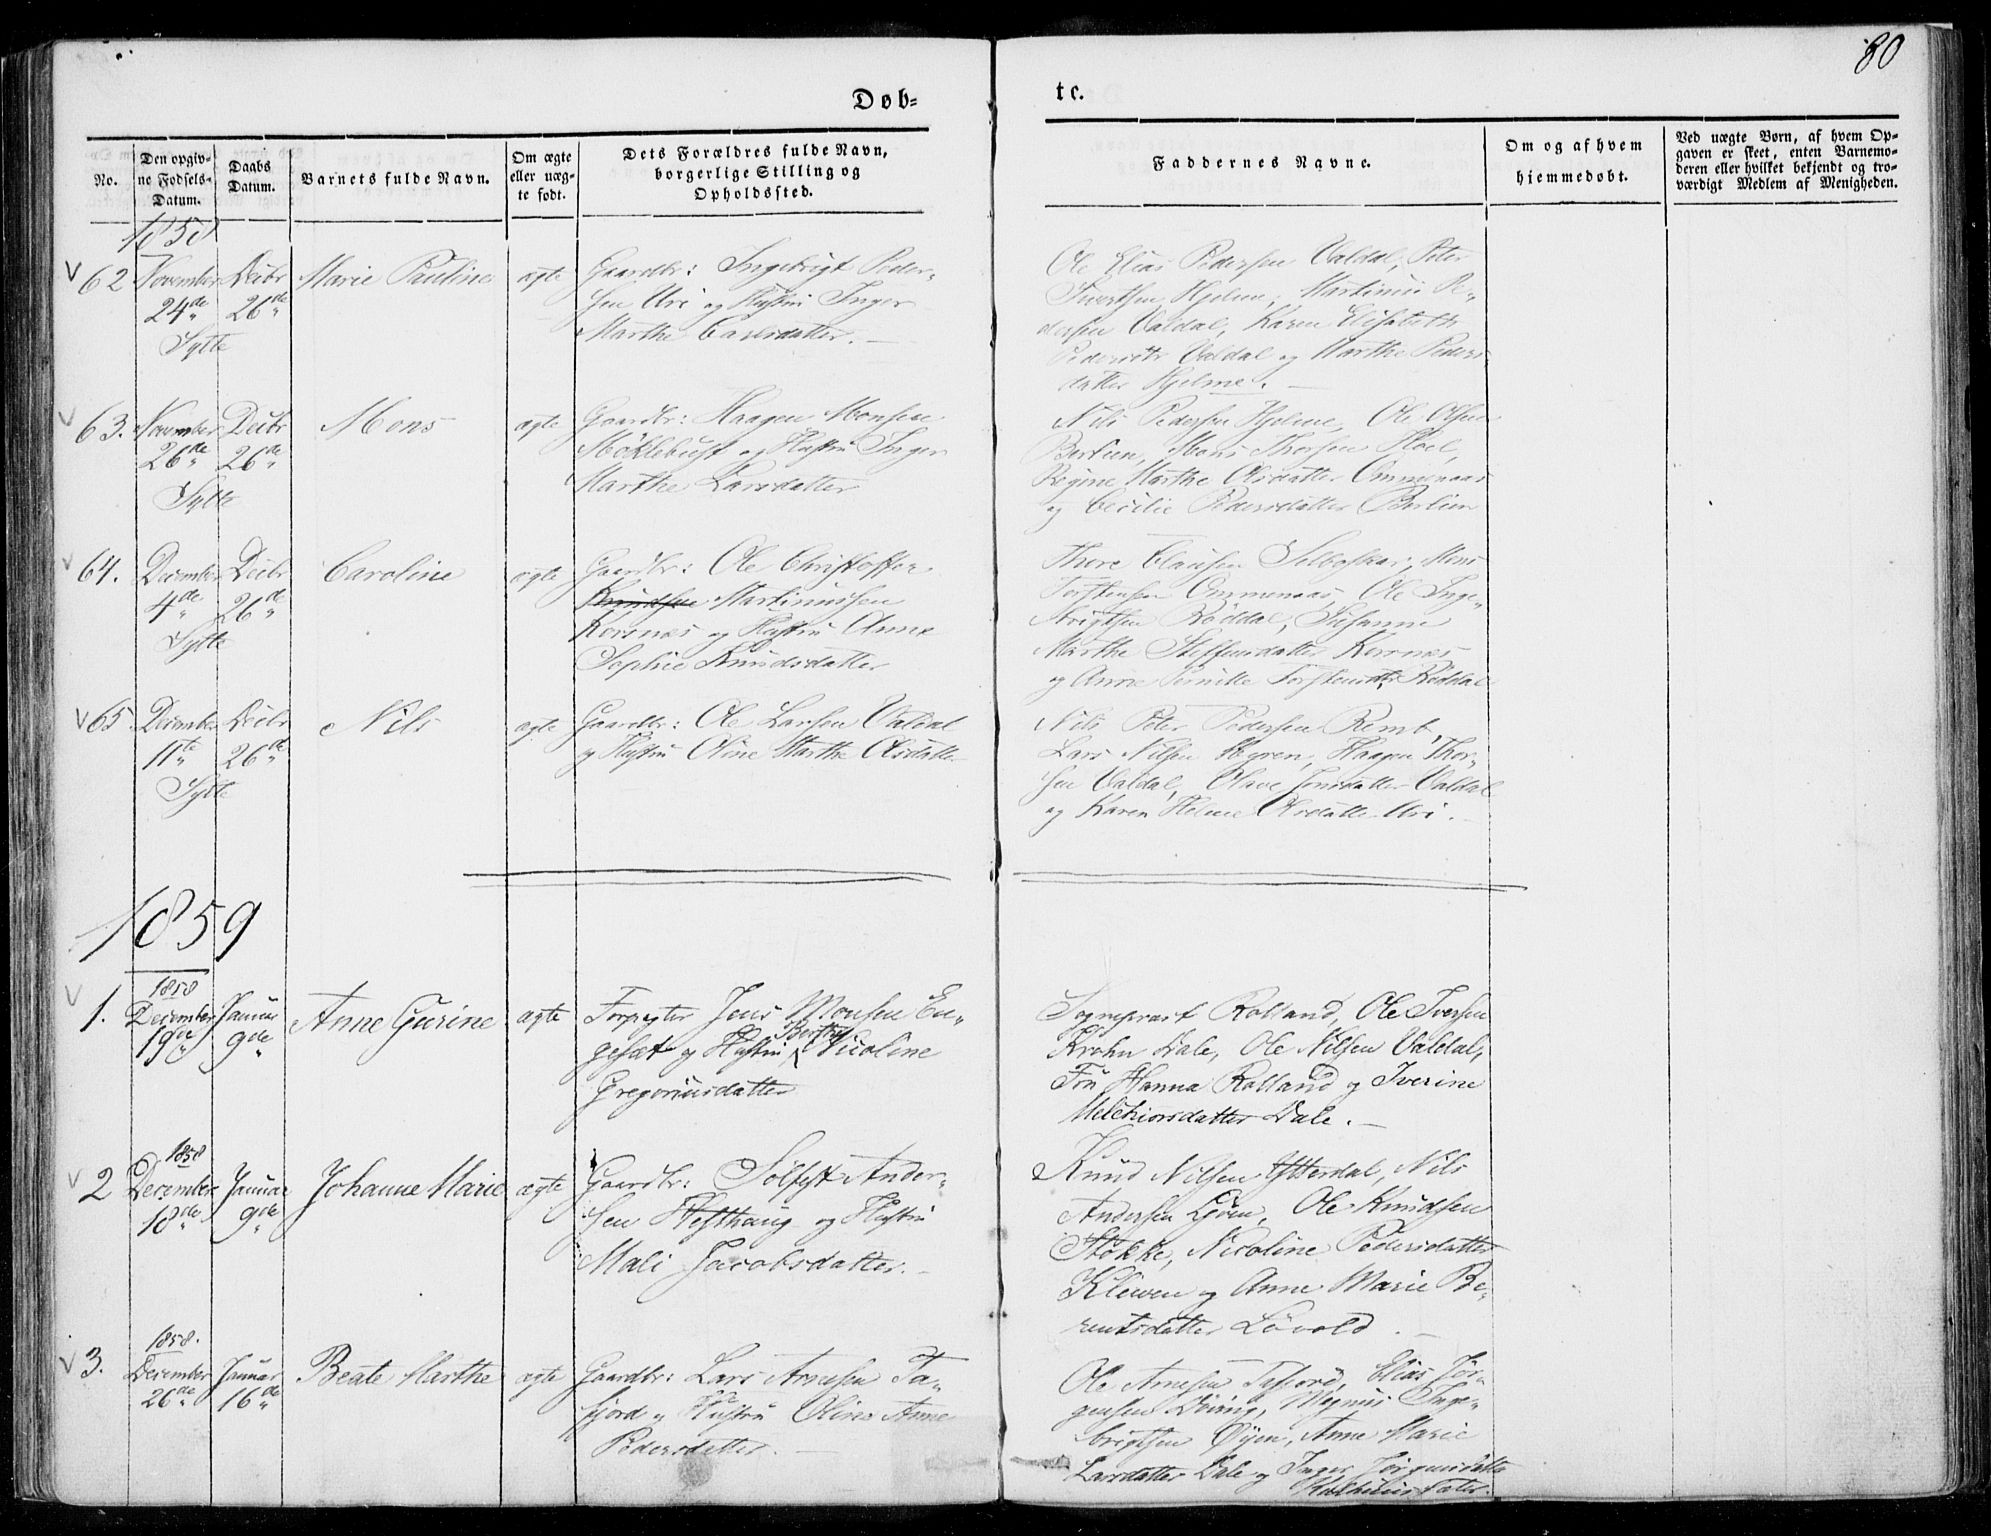 80
Døb=
tc.
No.
Den opgiv-
ne Fødsels-
Datum.
Daabs
Datum.
Barnets fulde Navn.
Om ægte
eller uæg-
te født.
Dets Forældres fulde Navn,
borgerlige Stilling og
Opholdssted.
Faddernes Navne.
Om og af hvem
hjemmedøbt.
Ved uægte Børn, af hvem Op-
gaven er skeet, enten Barnemo-
deren eller hvilket bekjendt og tro-
værdigt Medlem af Menigheden.
1858
62 November 24de Decbr 26de Marie Pauline ægte
Sylte
Gaardbr: Ingebrigt Peder-
sen Uri og Hustru Inger
Marthe Carlsdatter.
Ole Elias Pedersen Valdal, Peter
Ivertsen Hjelme, Martinus Pe-
dersen Valdal, Karen Elisabeth
Pedersdtr Valdal og Marthe Peders
datter Hjelme.
63. November 26de Decbr 26de Mons ægte
Sylte
Gaardbr: Haagen Monsen
Möklebust og Hustru Inger
Marthe Larsdatter
Nils Pedersen Hjelme, Ole Olsen
Berlien, Mons Thorsen Hoel,
Regine Marthe Olsdatter Ommenaas
og Cecilie Pedersdatter Berlien
64. December 4de Decbr 26de Caroline ægte
Sylte
Gaardbr: Ole Christoffer
Knudsen Martinussen
Korsnæs og Hustru Anne
Sophie Knudsdatter
Thore Clausen Selboskar, Mons
Torstensen Ommenaas, Ole Inge-
brigtsen Röddal, Susanne
Marthe Steffensdatter Korsnæs
og Anne Pernille Torstensdtr Röddal
65 December 11te Decbr 26de Nils ægte
Sylte
Gaardbr: Ole Larsen Valdal
og Hustru Oline Marthe Olsdatter
Nils Peter Pedersen Remb,
Lars Nilsen Myren, Haagen Thor-
sen Valdal, Olave Jonsdatter Valdal
og Karen Helene Olsdatter Uri.
1859
1. 1858 December 19de Januar 9de Anne Gurine ægte
Forpagter Jens Monsen En-
geset og Hustru Berthe Nicoline
Gregoriusdatter
Sognepræst Rolland, Ole Iversen
Krohn Dale, Ole Nilsen Valdal,
Fru Hanna Rolland og Iverine
Melchiorsdatter Dale.
2 1858 December 18de Januar 9de Johanne Marie ægte
Gaardbr: Sölfest Ander-
sen Hesthaug og Hustru
Mali Jacobsdatter.
Knud Nilsen Ytterdal, Nils
Andersen Ljöen, Ole Knudsen
Stokke, Nicoline Pedersdatter
Kleiven og Anne Marie Be-
rentsdatter Lövold.
3. 1858. December 26de Januar 16de Beate Marthe ægte
Gaardbr: Lars Arnesen Ta-
fjord og Hustru Oline Anne
Pedersdatter.
Ole Arnesen Tafjord, Elias Jör-
gensen Döving, Magnus Inge-
brigtsen Öyen, Anne Marie
Larsdatter Dale og Inger Jörgensdatter